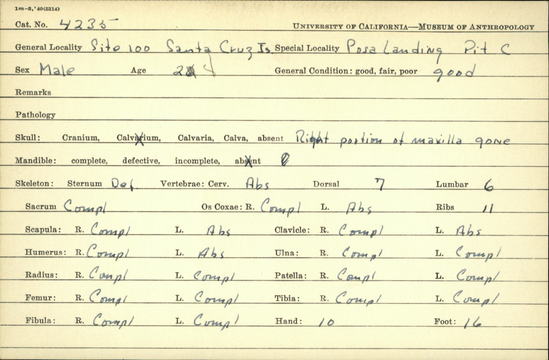 1m-8,'40(3314)
Cat. No. 4235 UNIVERSITY OF CALIFORNIA—MUSEUM OF ANTHROPOLOGY
General Locality Site 100 Santa Cruz Is. Special Locality Posa Landing Pit C
Sex Male Age General Condition: good, fair, poor good
Remarks
Pathology
Skull: Cranium, Calvarium, Calvaria, Calva, absent Right portion of maxilla gone
Mandible: complete, defective, incomplete, absent
Skeleton: Sternum Def Vertebrae: Cerv. Abs Dorsal 7 Lumbar 6
Sacrum Compl Os Coxae: R. Compl L. Abs Ribs 11
Scapula: R. Compl L. Abs Clavicle: R. Compl L. Abs
Humerus: R. Compl L. Abs Ulna: R. Compl L. Compl
Radius: R. Compl L. Compl Patella: R. Compl L. Compl
Femur: R. Compl L. Compl Tibia: R. Compl L. Compl
Fibula: R. Compl L. Compl Hand: 10 Foot: 16